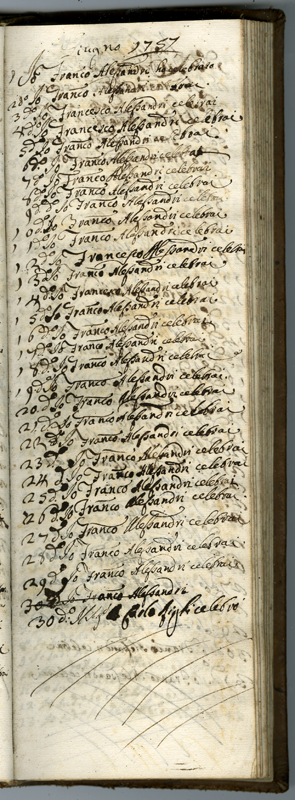 Iugno 1757
1 Io Franco Alessandri ho celebrato
2 do Io Franco Alessandri
3 do Io Francesco Alessandri celebrai
4 do Io Francesco Alessandri celebrai
5 do Io Franco Alessandri celebrai
6 do Io Franco Alessandri
7 do Io Franco Alessandri celebrai
8 do Io Franco Alessandri celebrai
9 do Io Franco Alessandri celebrai
10 do Io Franco Alessandri celebrai
11 do Io Franco Alessandri celebrai
12 do Io Francesco Alessandri celebrai
13 do Io Franco Alessandri celebrai
14 do Io Francesco Alessandri celebrai
15 do Io Franco Alessandri celebrai
16 do Io Franco Alessandri celebrai
17 do Io Franco Alessandri celebrai
18 do Io Franco Alessandri celebrai
19 do Io Franco Alessandri celebrai
20 do Io Franco Alessandri celebrai
21 do Io Franco Alessandri celebrai
22 do Io Franco Alessandri celebrai
23 do Io Franco Alessandri celebrai
24 do Io Franco Alessandri celebrai
25 do Io Franco Alessandri celebrai
26 do Io Franco Alessandri celebrai
27 do Io Franco Alessandri celebrai
28 do Io Franco Alessandri celebrai
29 do Io Franco Alessandri celebrai
30 do Io Franco Alessandri
30 do celebrò